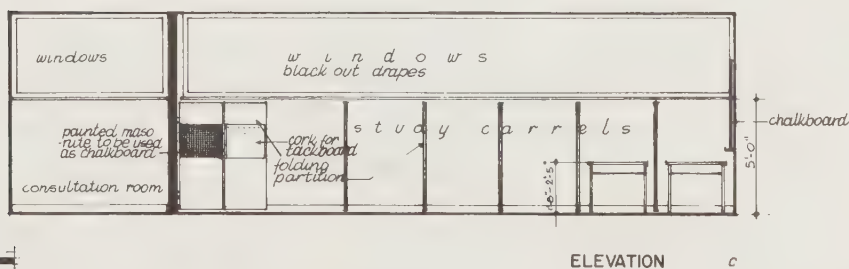 windows
windows
black out drapes
painted maso
nite to be used
as chalkboard
cork for
tackboard
folding
partition
study carrels
chalkboard
consultation room
5'-0"
ELEVATION c